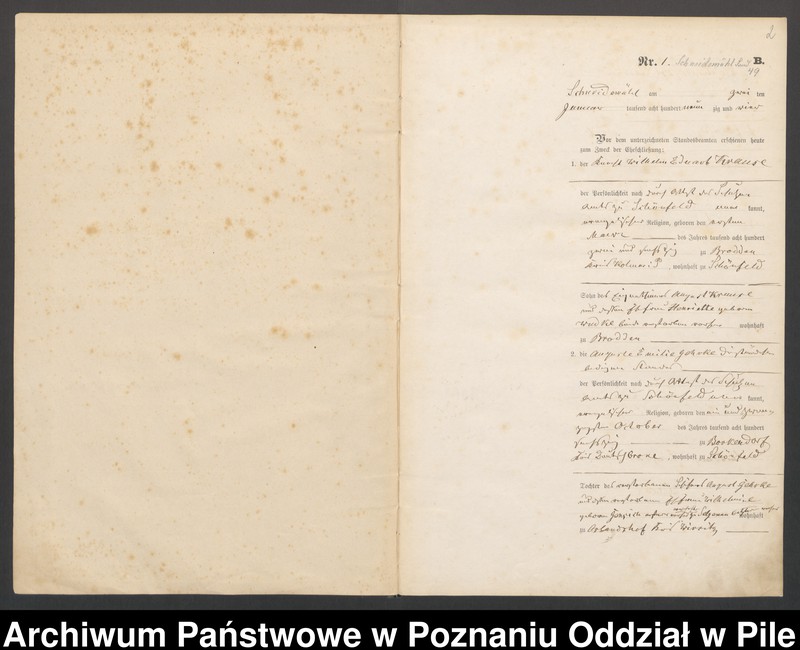 2
Nr. 1. Schneidemühl Land B.
49
Schneidemühl am zwei ten
Januar tausend acht hundert neun zig und vier
Vor dem unterzeichneten Standesbeamten erschienen heute
zum Zweck der Eheschließung:
1. der Knecht Wilhelm Eduard Krause
der Persönlichkeit nach durch Attest des Schulzen
amts zu Schönfeld aner kannt,
evangelischer Religion, geboren den ersten
März des Jahres tausend acht hundert
zu Brodden
Kreis Kolmar i/P, wohnhaft zu Schönfeld
Sohn des Eigenthümers August Krause
und dessen Ehefrau Henriette geborene
beide verstorben wohnhaft
zu Brodden
2. die Auguste Emilie Gohrke
Standes
der Persönlichkeit nach durch Attest des Schulzen
amts zu Schönfeld aner kannt,
evangelischer Religion, geboren den ein und zwan
zigsten October des Jahres tausend acht hundert
zu
Kreis Deutsch Crone, wohnhaft zu Schönfeld
Tochter des verstorbenen August Gohrke
und dessen verstorbenen Ehefrau Wilhelmine
geborene wohnhaft
zu Kreis Wirsitz
Archiwum Państwowe w Poznaniu Oddział w Pile